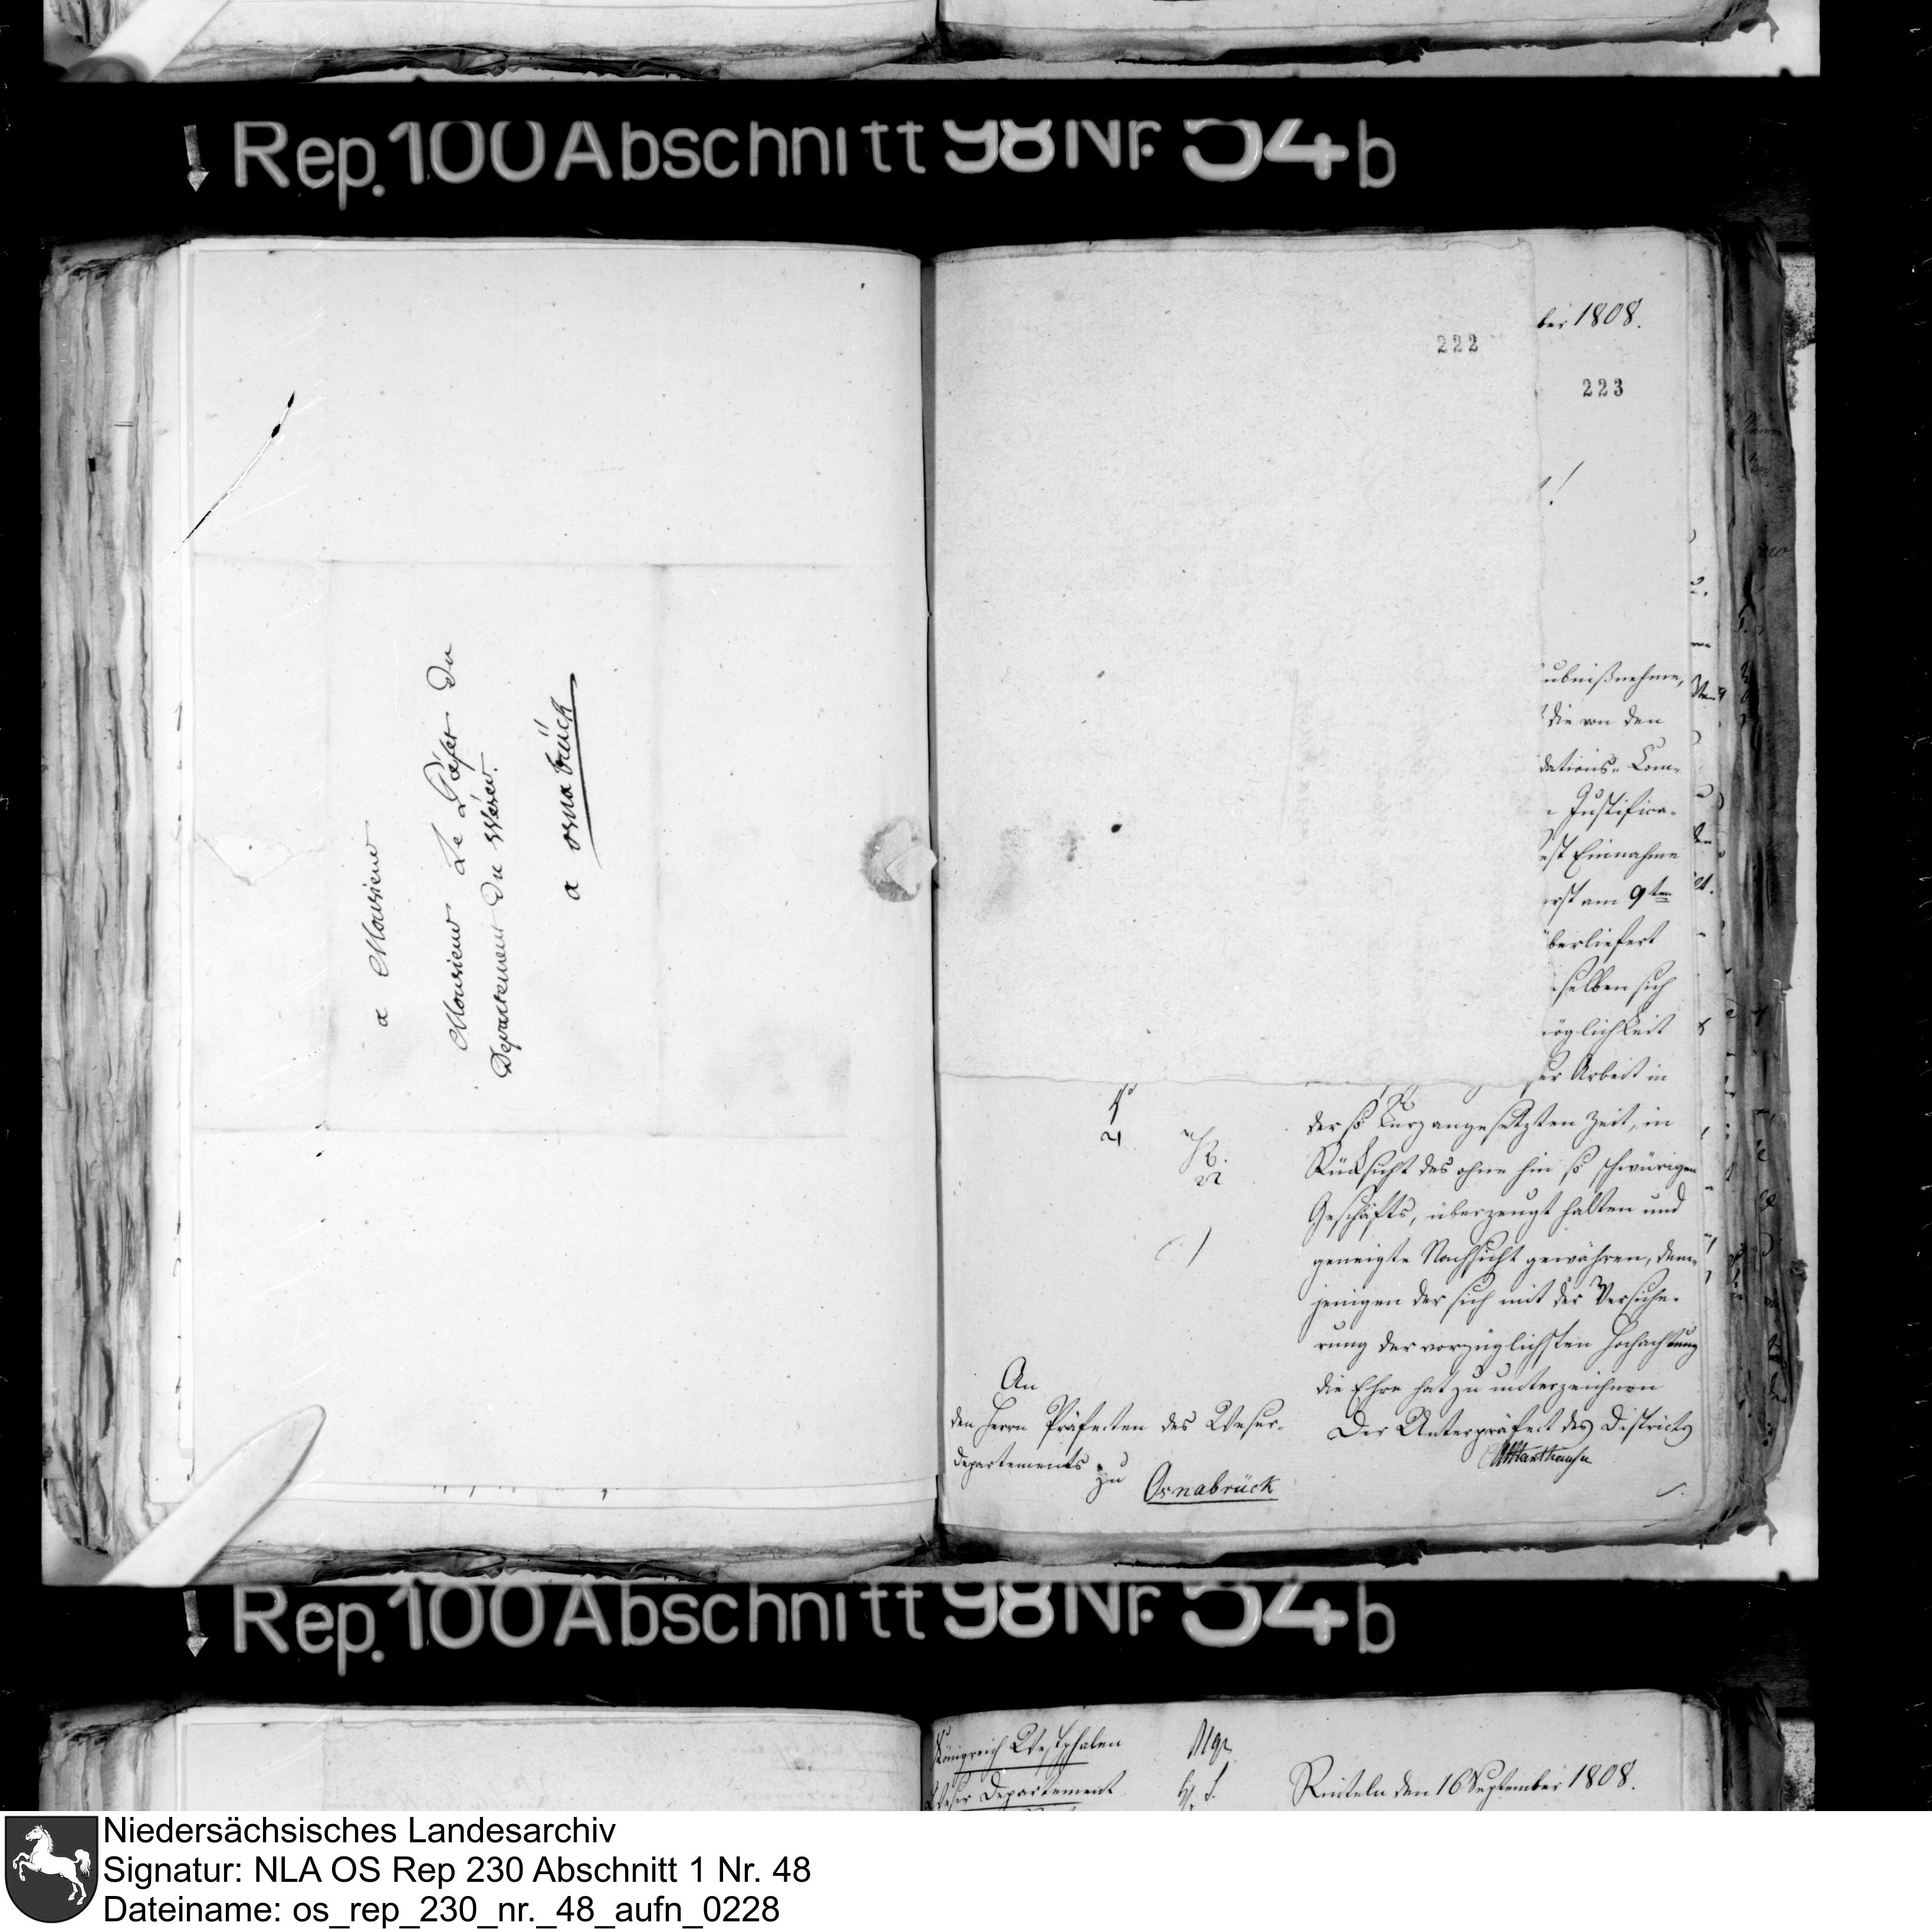 Rep. 100 Abschnitt 98 Nr. 54 b
a Monsieur
Monsieur Le Préfet du
Departement du Weser.
a osnabrück
222
ber 1808.
223
!
ubnißnehme,
die von den
dations- Com-
Justifica-
st Einnahme
rst am 9ten
überliefert
selben sich
öglichkeit
ser Arbeit in
der so kurz angesetzten Zeit, in
Rücksicht des ohne hin so schwürigen
Geschäfts, überzeugt halten und
geneigte Nachsicht gewähren, dem-
jenigen der sich mit der Versiche-
rung der vorzüglichsten Hochachtung
die Ehre hat zu unterzeichnen
Der Unterpräfect des Districts
An
den Herrn Präfecten des Weser-
departements zu
Osnabrück
Rep. 100 Abschnitt 98 Nr. 54 b
Königreich Westphalen
Weser Departement
Rinteln den 16 September 1808.
Niedersächsisches Landesarchiv
Signatur: NLA OS Rep 230 Abschnitt 1 Nr. 48
Dateiname: os_rep_230_nr._48_aufn_0228